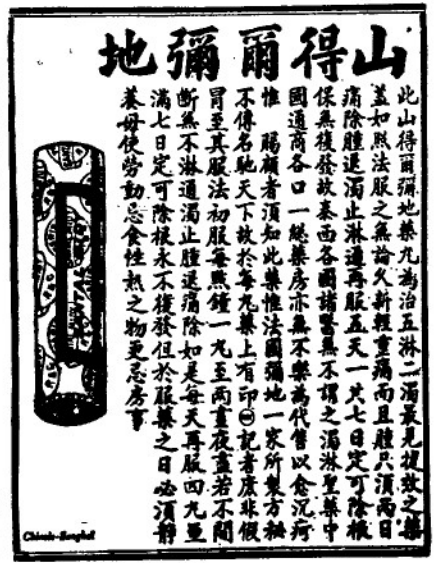 山得爾彌地
此山得爾彌地藥丸為治五淋一濁最見捷效之藥
蓋如照法服之無論久新輕重痛而且腫只須兩日
痛除腫退濁止淋通再服五天一共七日定可除根
保無復發故泰西各國諸醫無不謂之濁淋聖藥中
國通商各口一總藥房亦無不樂為代售以愈沉疴
惟 賜顧者須知此藥惟法國彌地一家所製方秘
不傳名馳天下故於每丸藥上有印記者庶非假
冒至其服法初服每點鐘一丸至兩晝夜盡若不間
斷無不淋通濁止腫退痛除如是每天再服四丸至
滿七日定可除根永不復發但於服藥之日必須靜
養毋使勞動忌食性熱之物更忌房事